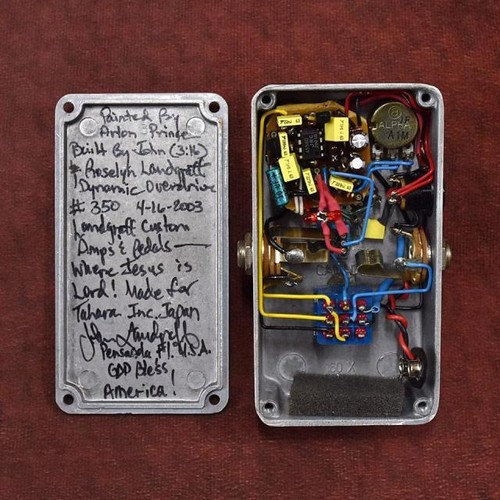 Painted By
Arlon Prince
Built By John (3:16)
& Roselyn Landgraff
Dynamic Overdrive
#: 350 4-16-2003
Landgraff Custom
Amps & Pedals —
Where Jesus is
Lord! Made for
Tahara Inc. Japan
John Landgraff
Pensacola Fl. U.S.A.
GOD Bless
America!
ALPHA
A1M